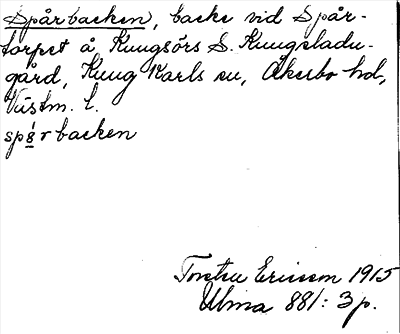 Spårbacken, backe vid Spår-
torpet å Kungsörs S. Kungsladu-
gård, Kung Karls sn, Åkerbo hd,
Västm. l.
spårbacken
Torsten Ericsson 1915
Ulma 881: 3 p.